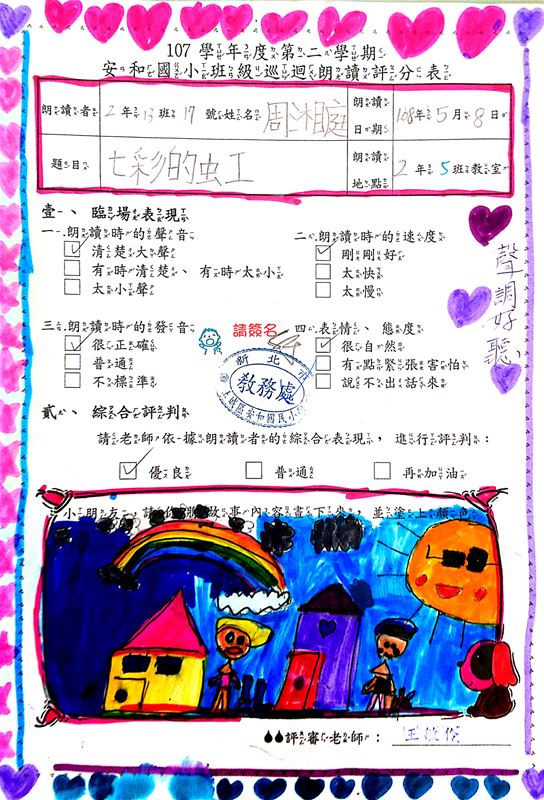 107 學年度第二學期
安和國小班級巡迴朗讀評分表
朗讀者 2年13班17號姓名
朗讀日期 108年5月8日
題目 七彩的虫工
朗讀地點 2年5班教室
壹、臨場表現
一.朗讀時的聲音
清楚大聲
有時清楚、有時太小
太小聲
二.朗讀時的速度
剛剛好
太快
太慢
聲調好聽
三.朗讀時的發音
很正確
普通
不標準
請簽名
四.表情、態度
很自然
有點緊張害怕
說不出話來
新北市
教務處
安和國民小
貳、綜合評判
請老師依據朗讀者的綜合表現，進行評判：
優良
普通
再加油
小朋友，請你將故事內容畫下來，並塗上顏色
評審老師：